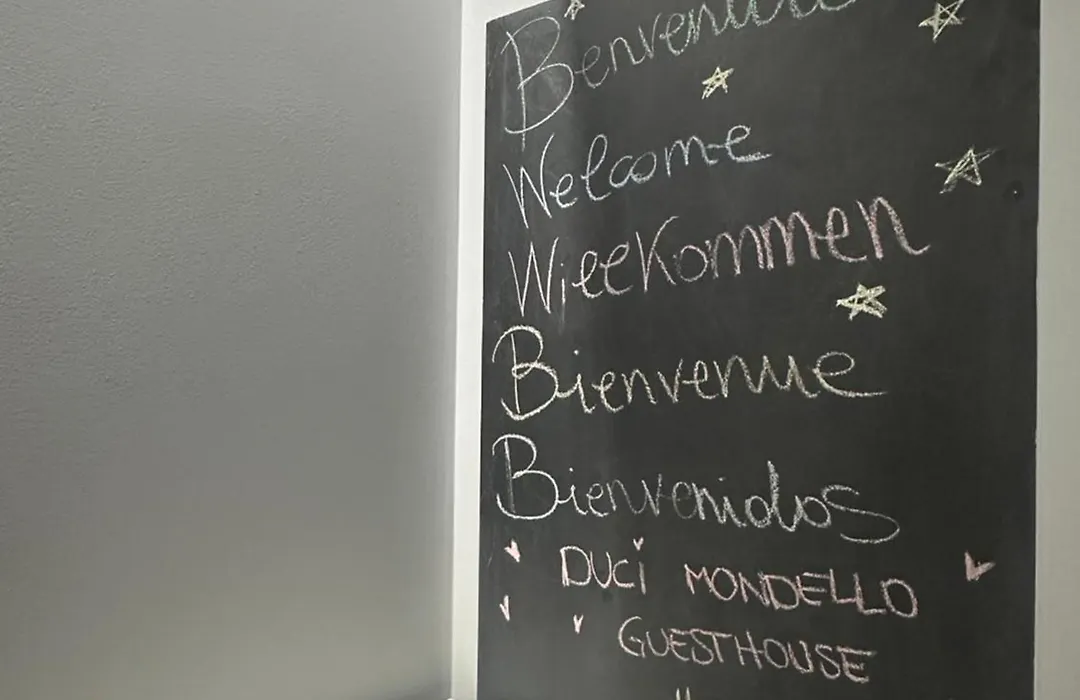 Benvenuti
Welcome
Willkommen
Bienvenue
Bienvenidos
DUCi MONDELLO
GUESTHOUSE